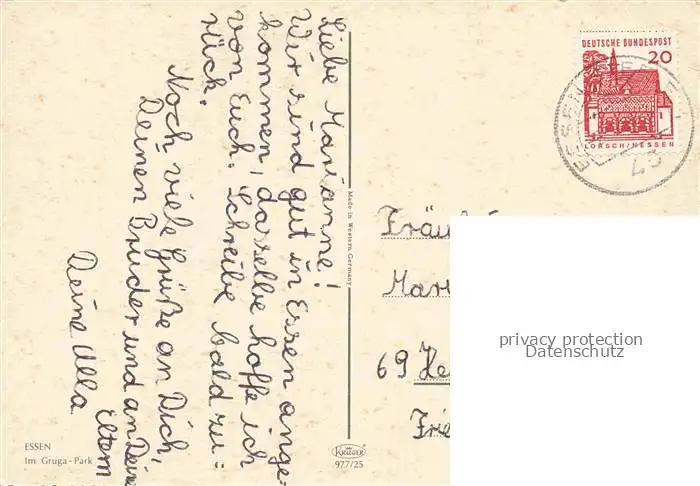 Liebe Marianne!
Wir sind gut in Essen ange-
kommen, dasselbe hoffe ich
von Euch. Schreibe bald zu=
rück.
Noch viele Grüße an Dich,
Deinen Bruder und an Deine
Eltern
Deine Ulla
ESSEN
Im Gruga-Park
Made in Western Germany
KRÜGER
977/25
DEUTSCHE BUNDESPOST
20
LORSCH/HESSEN
ESSEN
Fräul
Mar
69 He
Frie
privacy protection
Datenschutz